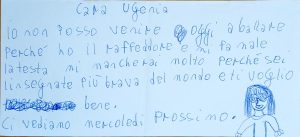 Cara Ugenia
Io non posso venire oggi a ballare
perché ho il raffeddore e mi fa male
la testa mi mancherai molto perché sei
linsegnate più brava del mondo e ti voglio
bene.
Ci vediamo mercoledì prossimo.